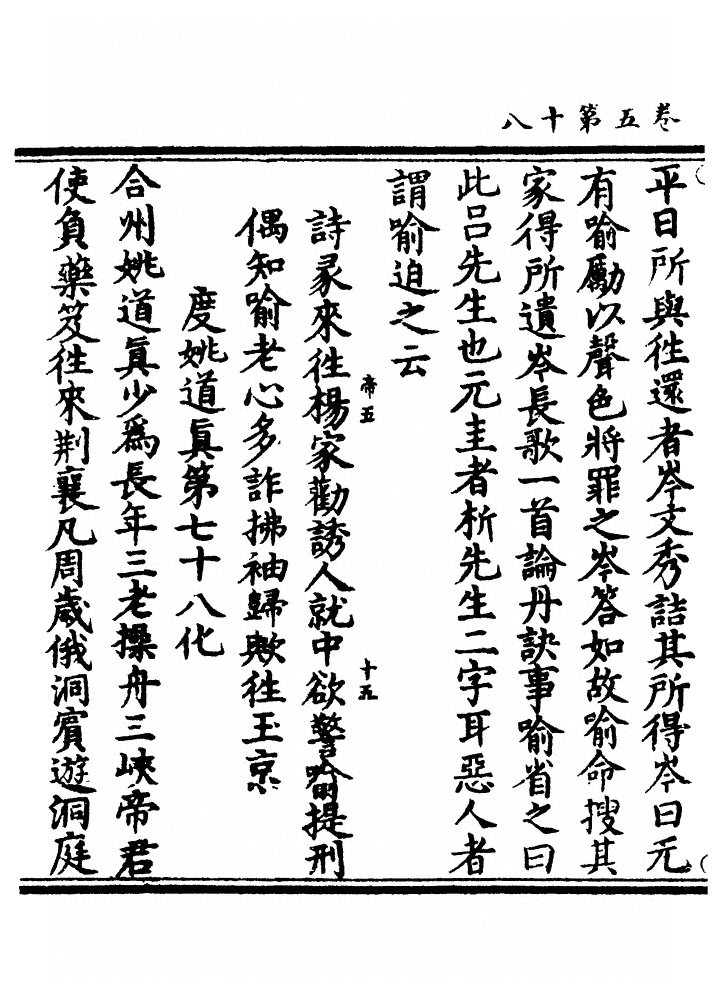 卷五第十八
平日所與徃還者岑文秀詰其所得岑曰元
有喻勵以聲色將罪之岑答如故喻命搜其
家得所遺岑長歌一首論丹訣事喻省之曰
此吕先生也元圭者析先生二字耳惡人者
謂喻迫之云
詩彖來徃楊家勸誘人就中欲警喻提刑
帝五
十五
偶知喻老心多詐拂袖歸歟徃玉京
度姚道眞第七十八化
合州姚道眞少爲長年三老操舟三峽帝君
使負藥笈徃來荆襄凡周歲俄洞賔遊洞庭